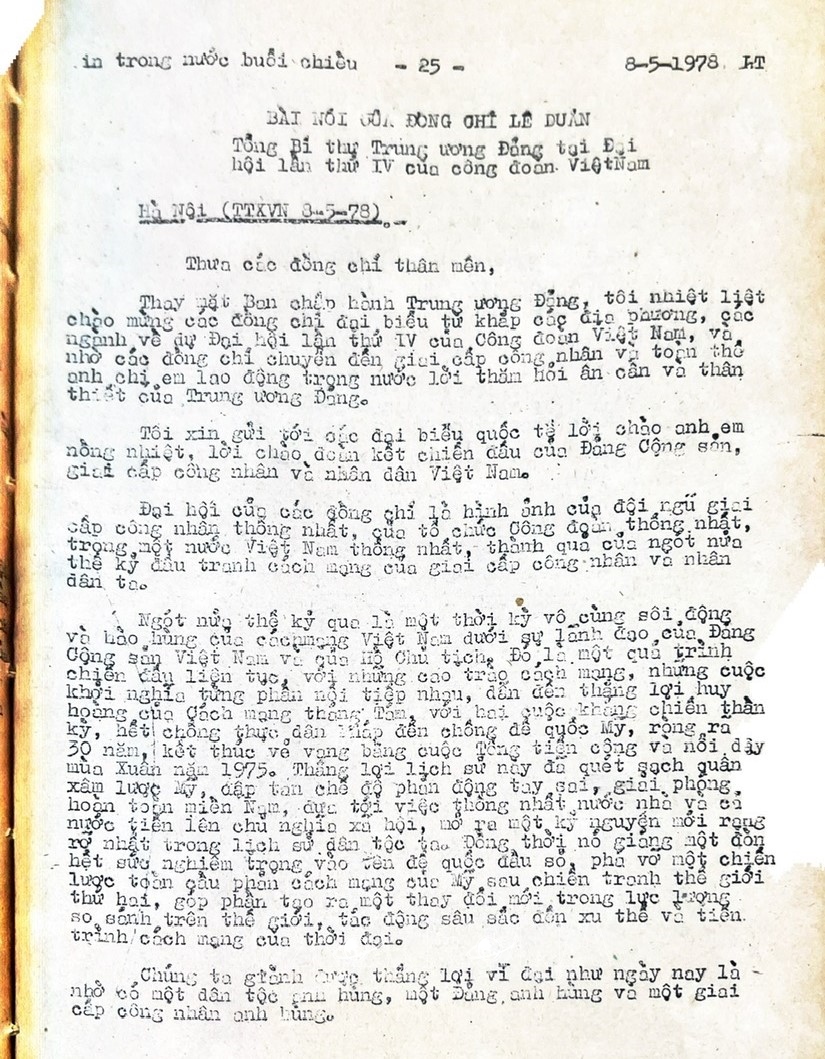 in trong nước buổi chiều - 25 - 8-5-1978 LT
BÀI NÓI CỦA ĐỒNG CHÍ LÊ DUẨN
Tổng Bí thư Trung ương Đảng tại Đại
hội lần thứ IV của công đoàn ViệtNam
Hà Nội (TTXVN 8-5-78).-
Thưa các đồng chí thân mến,
Thay mặt Ban chấp hành Trung ương Đảng, tôi nhiệt liệt
chào mừng các đồng chí đại biểu từ khắp các địa phương, các
ngành về dự Đại hội lần thứ IV của Công đoàn Việt Nam, và
nhờ các đồng chí chuyển đến giai cấp công nhân và toàn thể
anh chị em lao động trong nước lời thăm hỏi ân cần và thân
thiết của Trung ương Đảng.
Tôi xin gửi tới các đại biểu quốc tế lời chào anh em
nồng nhiệt, lời chào đoàn kết chiến đấu của Đảng Cộng sản,
giai cấp công nhân và nhân dân Việt Nam.
Đại hội của các đồng chí là hình ảnh của đội ngũ giai
cấp công nhân thống nhất, của tổ chức Công đoàn thống nhất,
trong một nước Việt Nam thống nhất, thành quả của ngót nửa
thế kỷ đấu tranh cách mạng của giai cấp công nhân và nhân
dân ta.
Ngót nửa thế kỷ qua là một thời kỳ vô cùng sôi động
và hào hùng của cáchmạng Việt Nam dưới sự lãnh đạo của Đảng
Cộng sản Việt Nam và của Hồ Chủ tịch. Đó là một quá trình
chiến đấu liên tục, với những cao trào cách mạng, những cuộc
khởi nghĩa từng phần nối tiếp nhau, dẫn đến thắng lợi huy
hoàng của Cách mạng tháng Tám, với hai cuộc kháng chiến thần
kỳ, hết chống thực dân Pháp đến chống đế quốc Mỹ, ròng rã
30 năm, kết thúc vẻ vang bằng cuộc Tổng tiến công và nổi dậy
mùa Xuân năm 1975. Thắng lợi lịch sử này đã quét sạch quân
xâm lược Mỹ, đập tan chế độ phản động tay sai, giải phóng
hoàn toàn miền Nam, đưa tới việc thống nhất nước nhà và cả
nước tiến lên chủ nghĩa xã hội, mở ra một kỷ nguyên mới rạng
rỡ nhất trong lịch sử dân tộc ta. Đồng thời nó giáng một đòn
hết sức nghiêm trọng vào tên đế quốc đầu sỏ, phá vỡ một chiến
lược toàn cầu phản cách mạng của Mỹ sau chiến tranh thế giới
thứ hai, góp phần tạo ra một thay đổi mới trong lực lượng
so sánh trên thế giới, tác động sâu sắc đến xu thế và tiến
trình cách mạng của thời đại.
Chúng ta giành được thắng lợi vĩ đại như ngày nay là
nhờ có một dân tộc anh hùng, một Đảng anh hùng và một giai
cấp công nhân anh hùng.